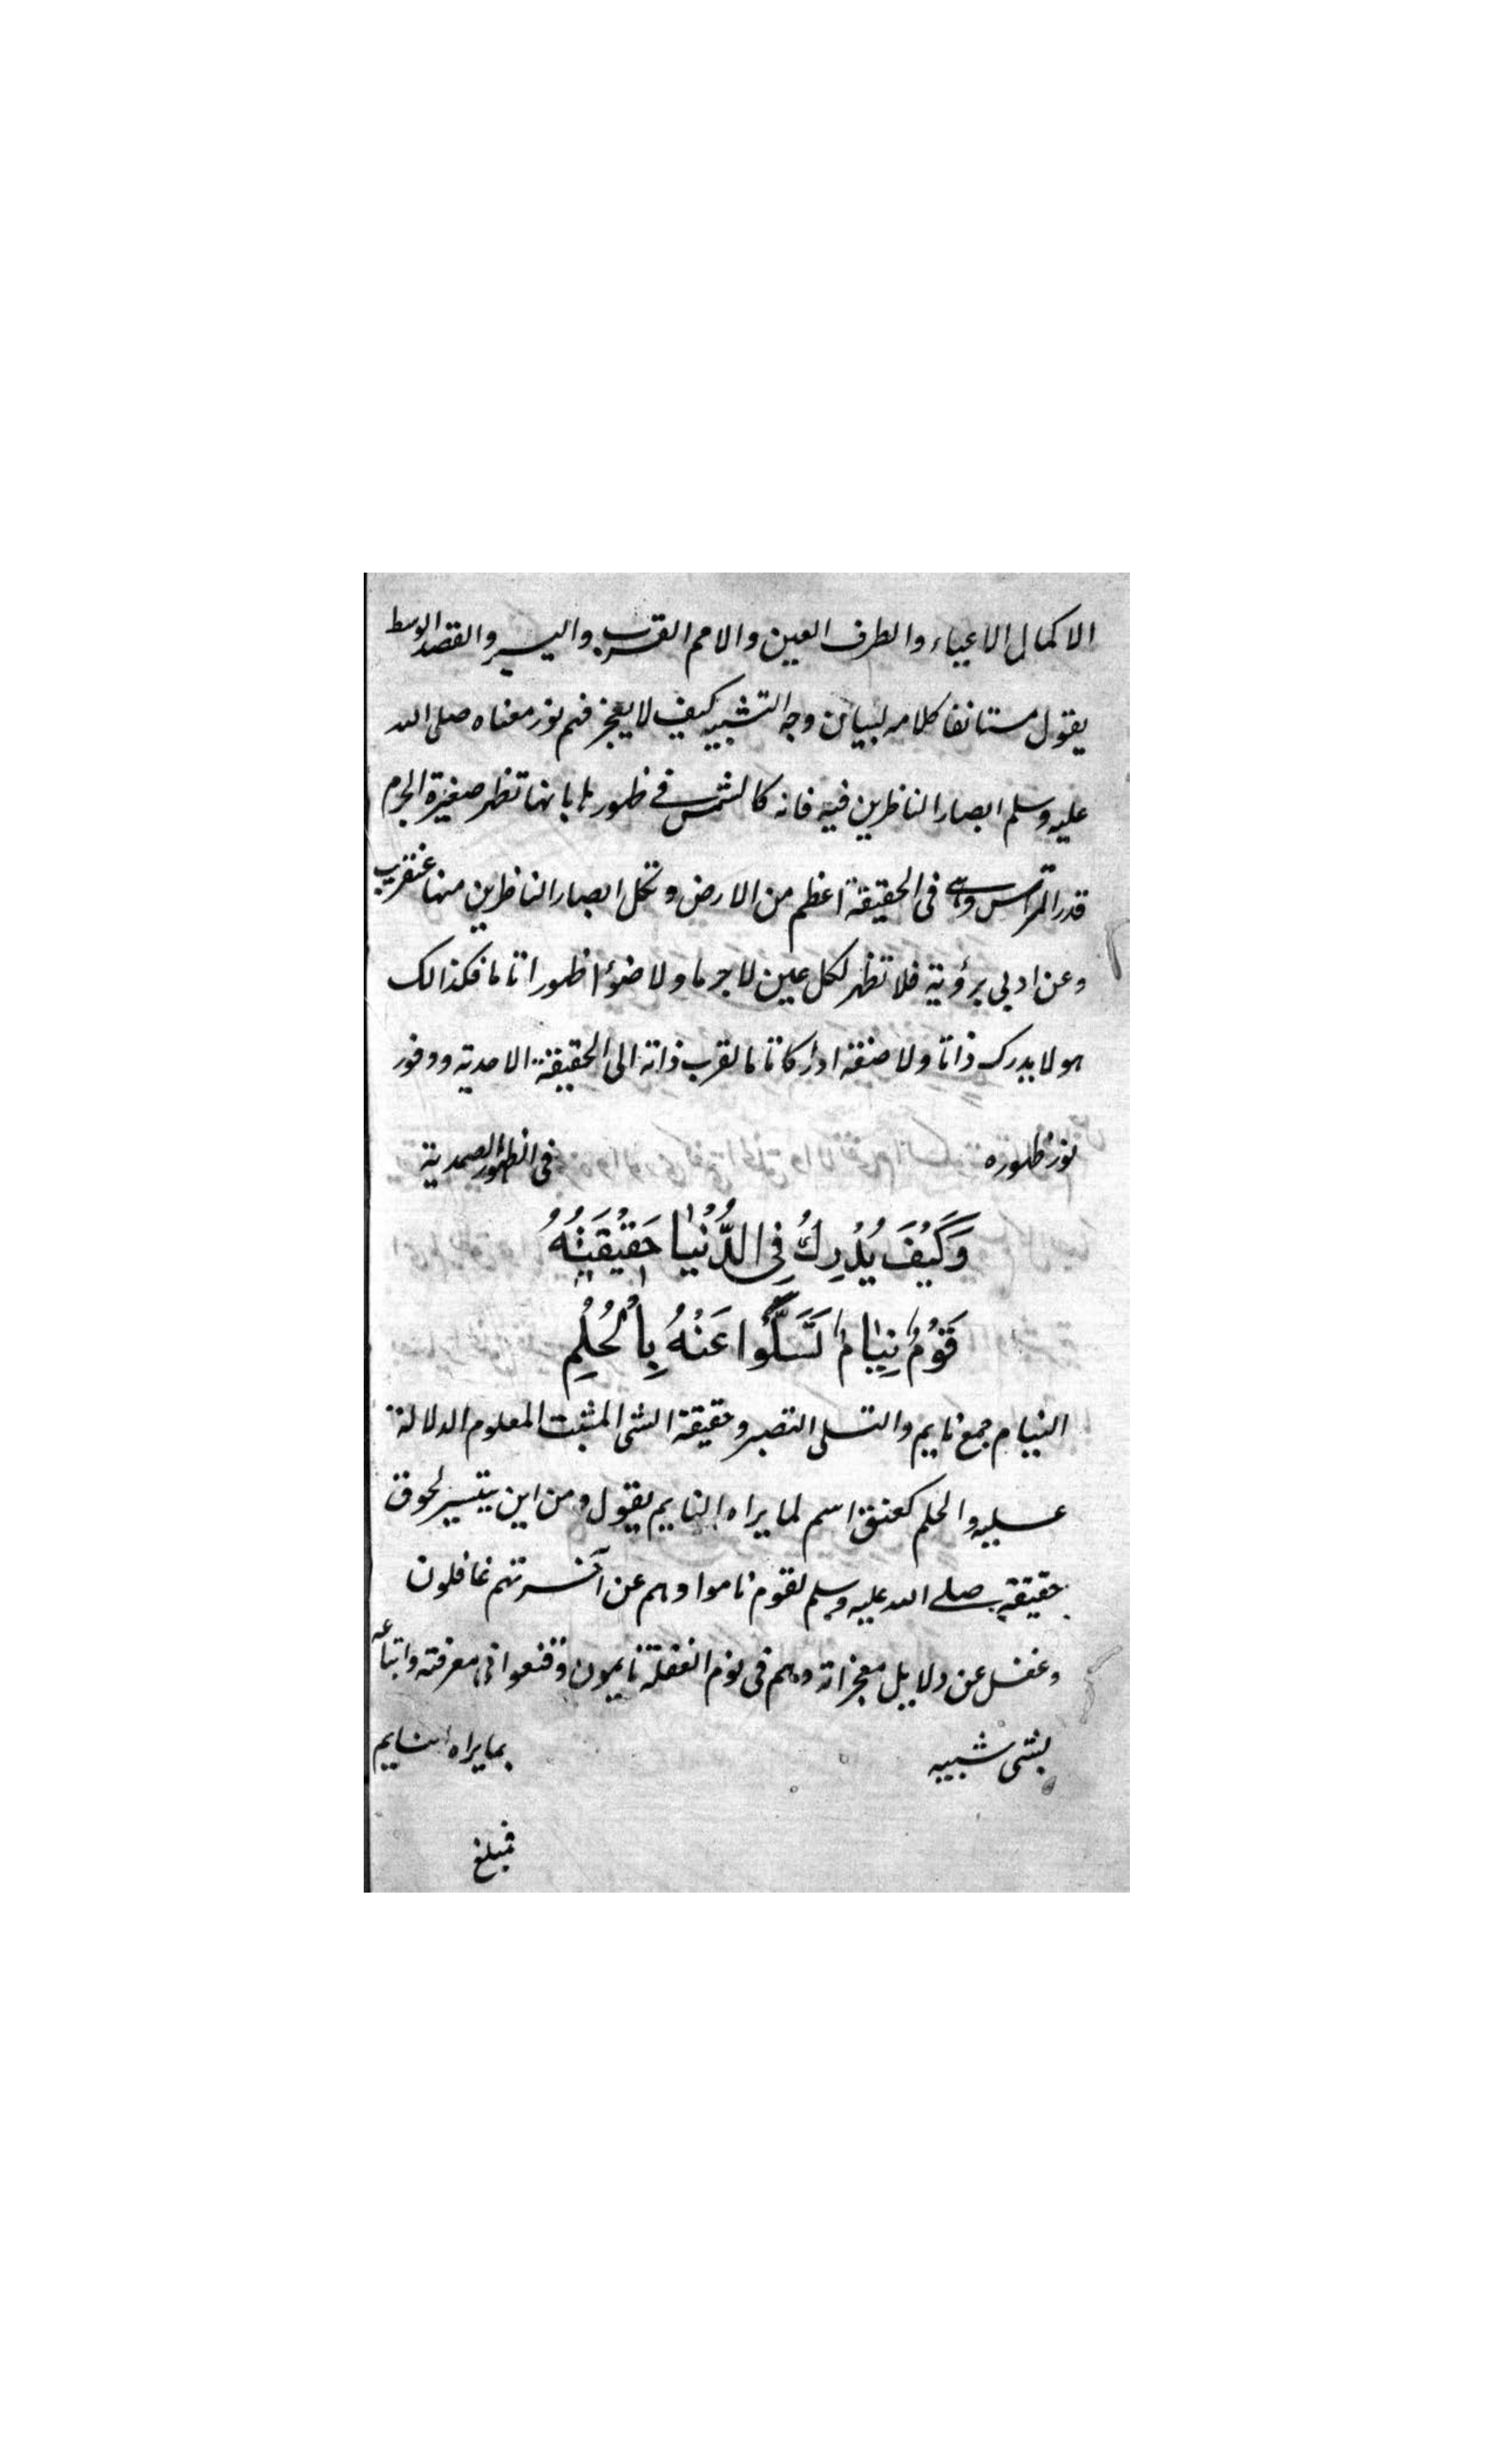 الاكمال الاعياء والطرف العين والامم القرب واليسير والقصد الوسط
يقول مستانفا كلامه لبيان وجه التشبيه كيف لا يعجز فهم نور معناه صلى الله
عليه وسلم ابصار الناظرين فيه فانه كالشمس في ظهورها بانها تظهر صغيرة الجرم
قدر الترس وهي في الحقيقة اعظم من الارض وتكل ابصار الناظرين منها عن قرب
وعن ادبى برؤية فلا تظهر لكل عين لا جرما ولا ضوءا ظهورا تاما فكذالك
هو لا يدرك ذاتا ولا صفة ادراكا تاما لقرب ذاته الى الحقيقة الاحدية ووفور
نور ظهوره في الظهور الصمدية
وَكَيْفَ يُدْرِكُ فِي الدُّنْيَا حَقِيْقَتَهُ
قَوْمٌ نِيَامٌ تَسَلَّوْا عَنْهُ بِالْحُلُمِ
النيام جمع نايم والتسلى التصبر وحقيقة الشى المثبت المعلوم الدلالة
عليه والحلم كعنق اسم لما يراه النايم يقول ومن اين يتيسر لحوق
حقيقته صلى الله عليه وسلم لقوم ناموا وهم عن آخرتهم غافلون
وغفل عن دلايل معجزاته وهم في نوم الغفلة نايمون وقنعوا في معرفته واتباعه
بشى شبيه بما يراه النايم
فمبلغ